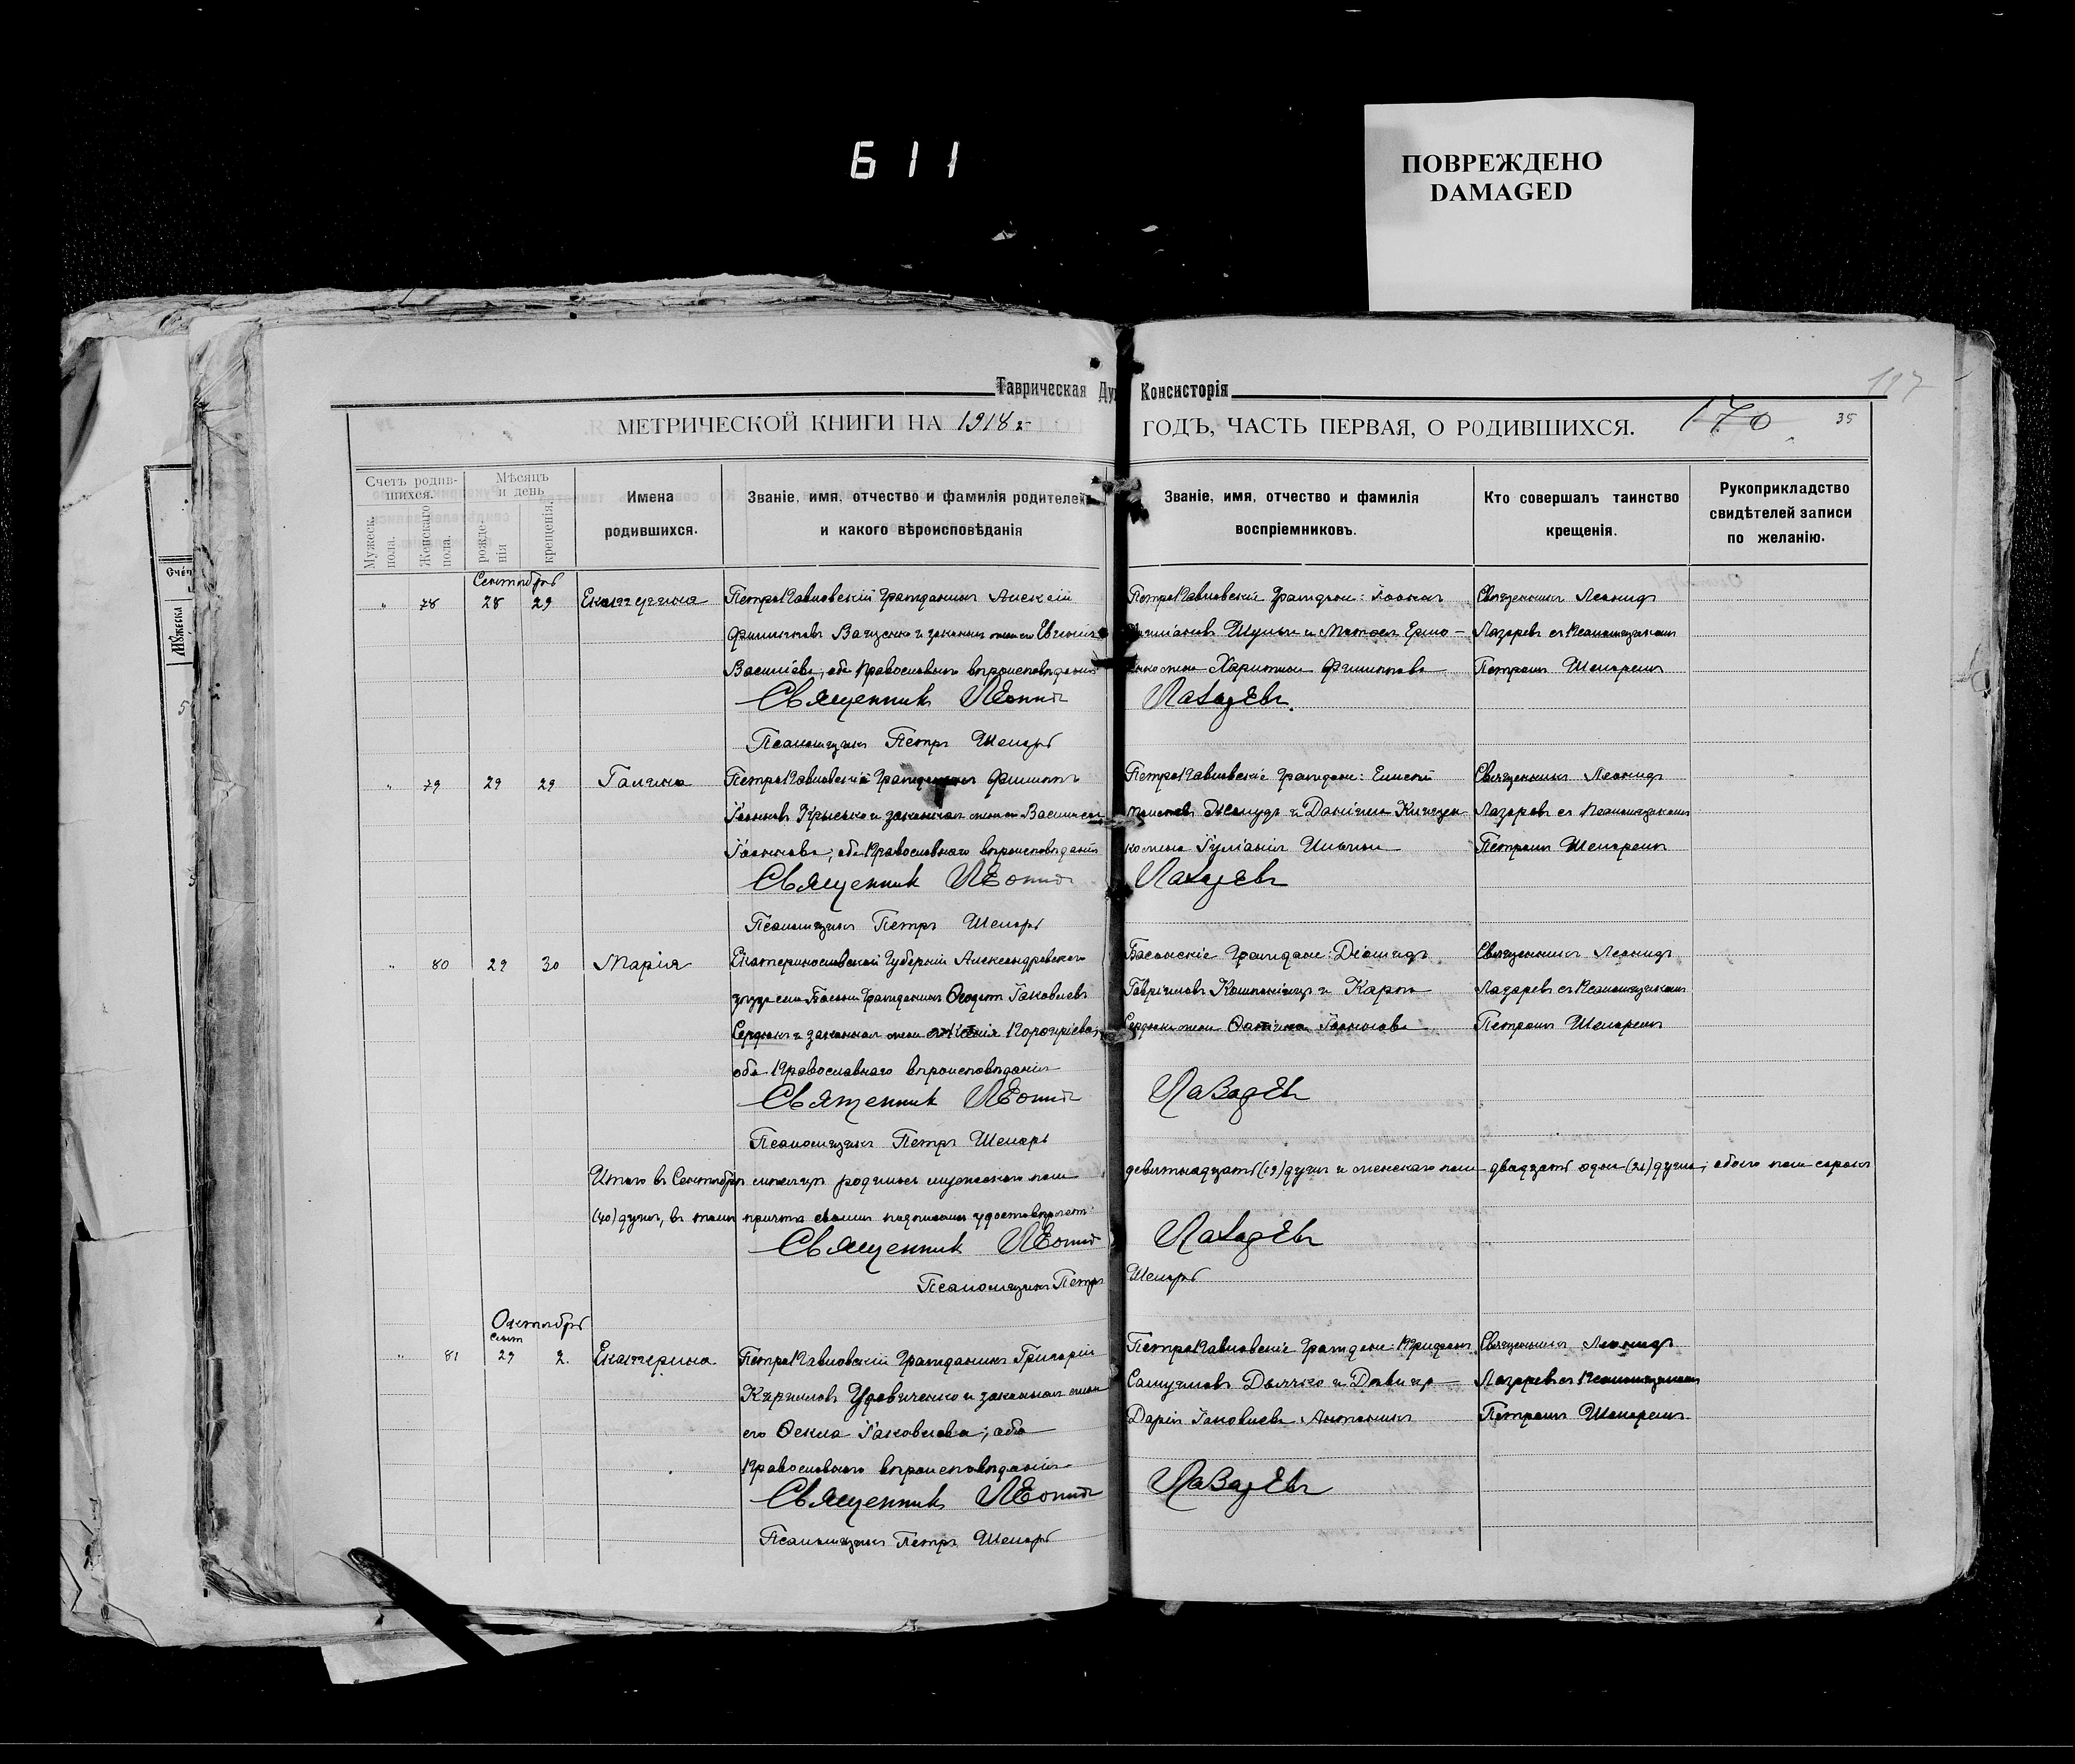 611
ПОВРЕЖДЕНО
DAMAGED
Таврическая Ду Консисторія
197
МЕТРИЧЕСКОЙ КНИГИ НА 1918 г. ГОДЪ, ЧАСТЬ ПЕРВАЯ, О РОДИВШИХСЯ. 170 35
Счетъ родив-
шихся.
Мужеск.
пола.
Женскаго
пола.
Мѣсяцъ
и день
рожде-
нія
крещенія.
Имена
родившихся.
Званіе, имя, отчество и фамилія родителей
и какого вѣроисповѣданія
Званіе, имя, отчество и фамилія
воспріемниковъ.
Кто совершалъ таинство
крещенія.
Рукоприкладство
свидѣтелей записи
по желанію.
Счет
Мужеска
5
Сентябрь
" 78 28 29 Екатерина
ПетроПавловскій Гражданинъ Алексій
Филипповъ Ващенко и законная жена его Евгенія
Василіева, оба Православнаго вѣроисповѣданія
Священникъ Леонидъ
Псаломщикъ Петръ Шепарь
ПетроПавловскіе Граждане: Іоаннъ
Шульга и Матөея Ермо-
ленко жена Харитина Филиппова
Лазаревъ.
Священникъ Леонидъ
Лазаревъ съ Псаломщикомъ
Петромъ Шепаремъ
" 79 29 29 Галина
ПетроПавловскій Гражданинъ Филиппъ
Іоанновъ Крысько и законная жена его Василиса
Іоаннова; оба Православнаго вѣроисповѣданія
Священникъ Леонидъ
Псаломщикъ Петръ Шепарь
ПетроПавловскіе Граждане: Елисей
и Даніила
жена Іуліанія Ильина
Лазаревъ
Священникъ Леонидъ
Лазаревъ съ Псаломщикомъ
Петромъ Шепаремъ
" 80 29 30 Марія
Екатеринославской Губерніи Александровскаго
уѣзда села Басани Гражданинъ Ѳеодотъ Іаковлевъ
Сердюкъ и законная жена его Ксенія Порфиріева,
оба Православнаго вѣроисповѣданія
Священникъ Леонидъ
Псаломщикъ Петръ Шепарь
Басанскіе Граждане: Діомидъ
Гавріиловъ Компаніецъ и Карпа
Сердюка жена Іоаннова
Лазаревъ
Священникъ Леонидъ
Лазаревъ съ Псаломщикомъ
Петромъ Шепаремъ
Итого въ Сентябрѣ мѣсяцѣ родилось мужескаго пола девятнадцать (19) душъ и женскаго пола двадцать одна (21) душа; обоего пола сорокъ
(40) душъ, въ томъ причтъ своими подписями удостовѣряетъ:
Священникъ Леонидъ Лазаревъ
Псаломщикъ Петръ Шепарь
Октябрь
Сент
" 81 29 2. Екатерина
ПетроПавловскій Гражданинъ Григорій
Кирилловъ Удовиченко и законная жена
его Ѳекла Іаковлева; оба
Православнаго вѣроисповѣданія
Священникъ Леонидъ
Псаломщикъ Петръ Шепарь
ПетроПавловскіе Граждане: Трифонъ
Самуиловъ Дьячко и Дѣвица
Дарія Іаковлева
Лазаревъ
Священникъ Леонидъ
Лазаревъ съ Псаломщикомъ
Петромъ Шепаремъ.